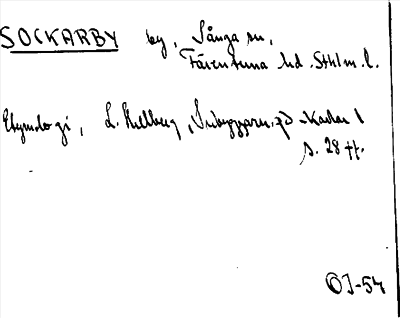 SOCKARBY by, Sånga sn,
Färentuna hd. Sthlm. l.
Etymologi, L. Hellberg, Inbyggarn. på -karlar 1
s. 28 ff.
OJ-54